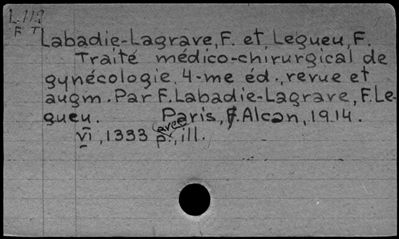 L.112
F T
Labadie-Lagrave, F. et Legueu, F.
Traité médico-chirurgical de
gynécologie. 4-me éd., revue et
augm. Par F. Labadie-Lagrave, F. Le-
gueu. Paris, F. Alcan, 1914.
VI, 1333 p. avec ill.